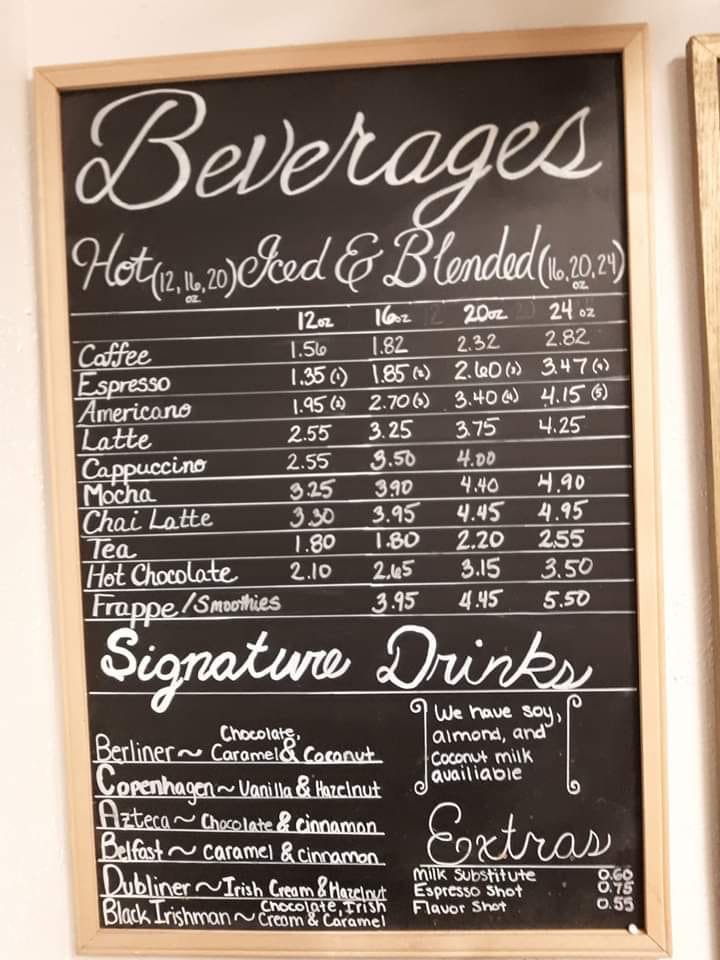 Beverages
Hot (12, 16, 20) oz Iced & Blended (16, 20, 24) oz
12oz 16oz 20oz 24 oz
Caffee 1.56 1.82 2.32 2.82
Espresso 1.35 (1) 1.85 (2) 2.60 (3) 3.47 (4)
Americano 1.95 (2) 2.70 (3) 3.40 (4) 4.15 (5)
Latte 2.55 3.25 3.75 4.25
Cappuccino 2.55 3.50 4.00
Mocha 3.25 3.90 4.40 4.90
Chai Latte 3.30 3.95 4.45 4.95
Tea 1.80 1.80 2.20 2.55
Hot Chocolate 2.10 2.65 3.15 3.50
Frappe/Smoothies 3.95 4.45 5.50
Signature Drinks
Berliner ~ Chocolate, Caramel & Coconut
Copenhagen ~ Vanilla & Hazelnut
Azteca ~ Chocolate & cinnamon
Belfast ~ caramel & cinnamon
Dubliner ~ Irish Cream & Hazelnut
Black Irishman ~ Chocolate, Irish Cream & Caramel
We have soy,
almond, and
coconut milk
availiable
Extras
Milk Substitute 0.60
Espresso Shot 0.75
Flavor Shot 0.55